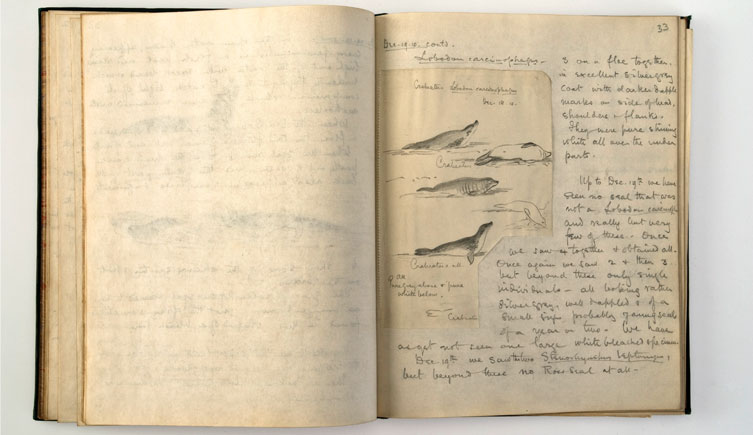 33
Dec. 19. 10. contd.
Lobodon carcinophagus.
Crabeaters Lobodon carcinophagus
Dec. 18. 10.
Crabeater
Crabeaters all
all
grey above & pure
white below
Crabeater
3 on a floe together.
in excellent silver grey
coat with darker dapple
marks on side of head,
shoulders & flanks.
They were pure shining
white all over the under
parts.
Up to Dec. 19th we have
seen no seal that was
not a Lobodon
and really but very
few of these. Once
we saw together & obtained all.
Once again we saw 2 & then 3
but beyond these only single
individuals - all looking rather
silver grey, well dappled & of a
small size, probably young seals
of a year or two. We have
as yet not seen one large white bleached specimen.
Dec. 19th we saw two Stenorhynchus leptonyx,
but beyond these no Ross Seal at all -